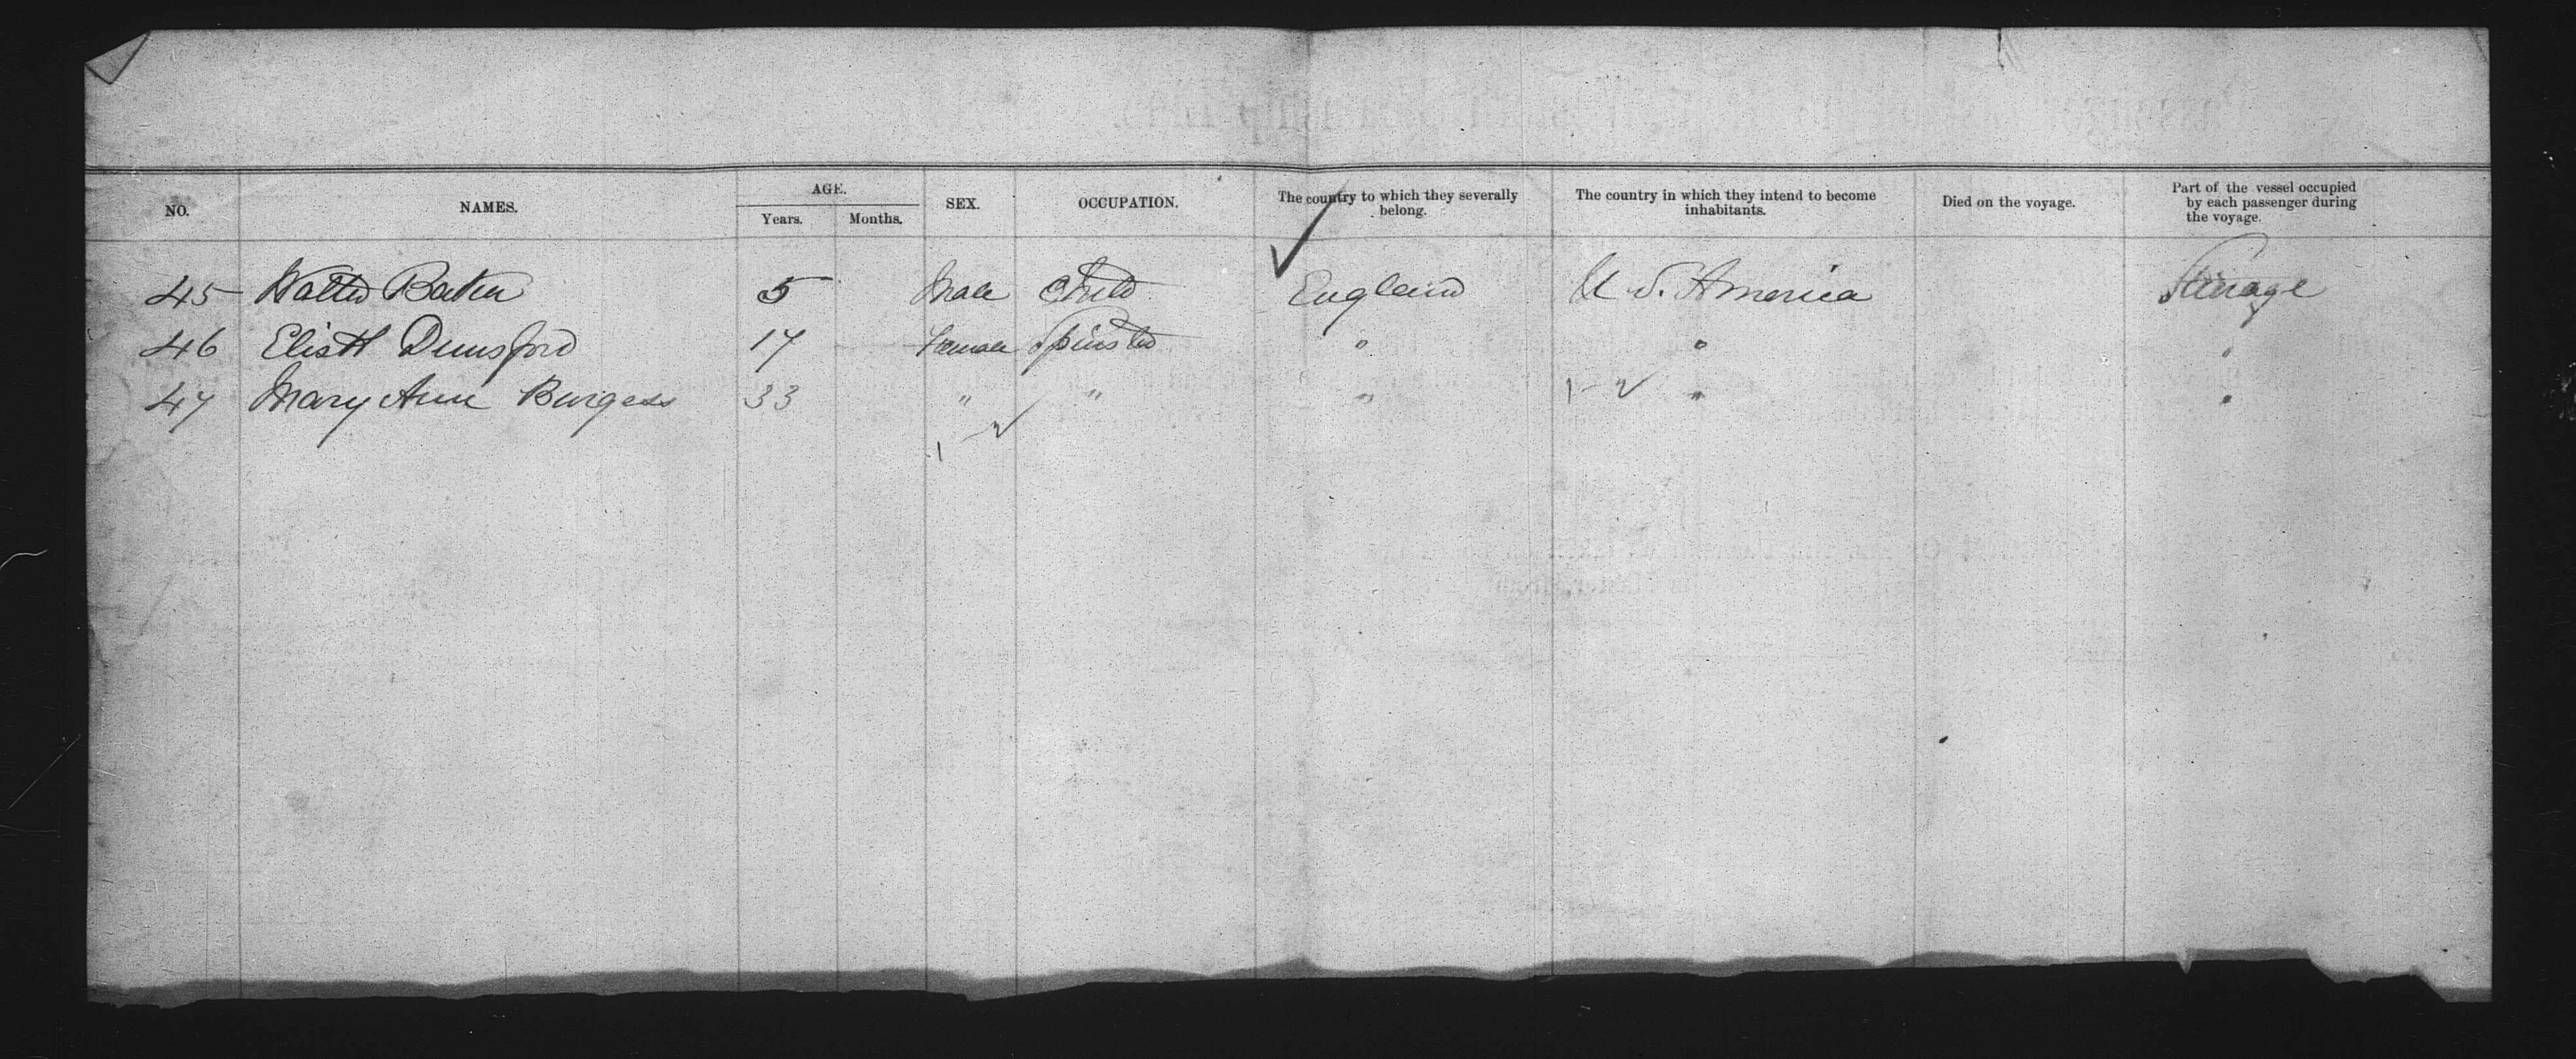 NO. NAMES. AGE. Years. Months. SEX. OCCUPATION. The country to which they severally belong. The country in which they intend to become inhabitants. Died on the voyage. Part of the vessel occupied by each passenger during the voyage.
45 Walter Baker 5 Male Child England U. S. America Steerage
46 Elisth Dunsford 17 Female Spinster " " "
47 Mary Ann Burgess 33 " " " " "